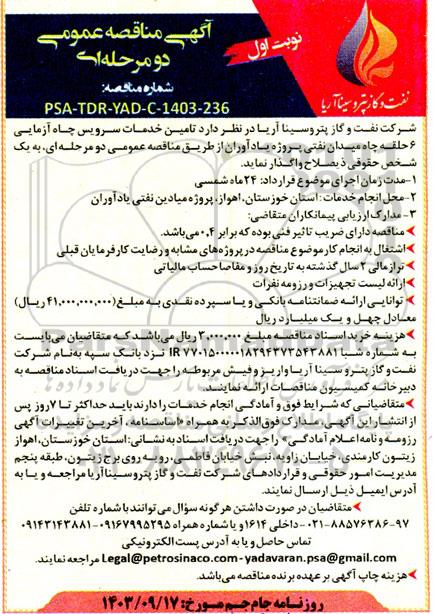 آگهی مناقصه عمومی
دو مرحله‌ای
نوبت اول
شماره مناقصه:
PSA-TDR-YAD-C-1403-236
نفت و گاز پتروسینا آریا
شرکت نفت و گاز پتروسینا آریا در نظر دارد تامین خدمات سرویس چاه آزمایی
۶ حلقه چاه میدان نفتی پروژه یادآوران از طریق مناقصه عمومی دو مرحله‌ای، به یک
شخص حقوقی ذیصلاح واگذار نماید.
۱-مدت زمان اجرای موضوع قرارداد: ۲۴ ماه شمسی
۲- محل انجام خدمات: استان خوزستان، اهواز، پروژه میادین نفتی یادآوران
۳- مدارک ارزیابی پیمانکاران متقاضی:
مناقصه دارای ضریب تاثیر فنی بوده که برابر ۰,۴ می‌باشد.
اشتغال به انجام کار موضوع مناقصه در پروژه‌های مشابه و رضایت کارفرمایان قبلی
تراز مالی ۲ سال گذشته به تاریخ روز و مفاصا حساب مالیاتی
ارائه لیست تجهیزات و رزومه نفرات
توانایی ارائه ضمانتنامه بانکی و یا سپرده نقدی به مبلغ (۴۱,۰۰۰,۰۰۰,۰۰۰ ریال)
معادل چهل و یک میلیارد ریال
هزینه خرید اسناد مناقصه مبلغ ۳,۰۰۰,۰۰۰ ریال می‌باشد که متقاضیان می‌بایست
به شماره شبا IR ۷۷۰۱۵۰۰۰۰۰۱۸۳۹۴۳۷۳۵۴۳۸۸۱ نزد بانک سپه به‌نام شرکت
نفت و گاز پتروسینا آریا واریز و فیش مربوطه را جهت دریافت اسناد مناقصه به
دبیرخانه کمیسیون مناقصات ارائه نمایند.
متقاضیانی که شرایط فوق و آمادگی انجام خدمات را دارند باید حداکثر تا ۷ روز پس
از انتشار این آگهی مدارک فوق‌الذکر به همراه «اساسنامه، آخرین تغییرات آگهی
رزومه و نامه اعلام آمادگی» را جهت دریافت اسناد به نشانی: استان خوزستان، اهواز
زیتون کارمندی، خیابان زاویه، نبش خیابان فاطمی، روبه روی برج زیتون، طبقه پنجم
مدیریت امور حقوقی و قراردادهای شرکت نفت و گاز پتروسینا آریا مراجعه و یا به
آدرس ایمیل ذیل ارسال نمایند.
متقاضیان در صورت داشتن هر گونه سؤال می‌توانند با شماره تلفن
۹۷-۸۸۵۷۶۳۸۶-۰۲۱ - داخلی ۱۶۱۴ و یا شماره همراه ۰۹۱۶۷۹۹۵۲۹۵ - ۰۹۱۴۳۱۴۳۸۸۱
تماس حاصل و یا به آدرس پست الکترونیکی
Legal@petrosinaco.com - yadavaran.psa@gmail.com مراجعه نمایند.
هزینه چاپ آگهی بر عهده برنده مناقصه می‌باشد.
روزنامه جام جم مورخ: ۱۴۰۳/۰۹/۱۷